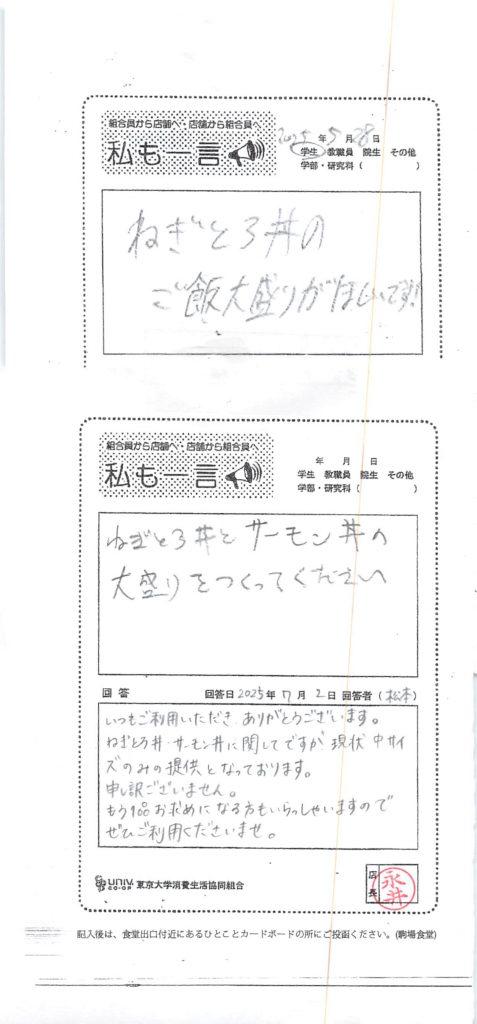 組合員から店舗へ・店舗から組合員へ
私も一言
2025年5月28日
学生 教職員 院生 その他
学部・研究科( )
ねぎとろ丼の
ご飯大盛りがほしいです!
組合員から店舗へ・店舗から組合員へ
私も一言
年 月 日
学生 教職員 院生 その他
学部・研究科( )
ねぎとろ丼とサーモン丼の
大盛りをつくってください
回答 回答日 2025年7月2日 回答者(松本)
いつもご利用いただき ありがとうございます。
ねぎとろ丼 サーモン丼に関してですが 現状 中サイ
ズのみの提供となっております。
申し訳ございません。
もう1品お求めになる方もいらっしゃいますので
ぜひご利用くださいませ。
univ. CO-OP 東京大学消費生活協同組合
店長 永井
記入後は、食堂出口付近にあるひとことカードボードの所にご投函ください。(駒場食堂)